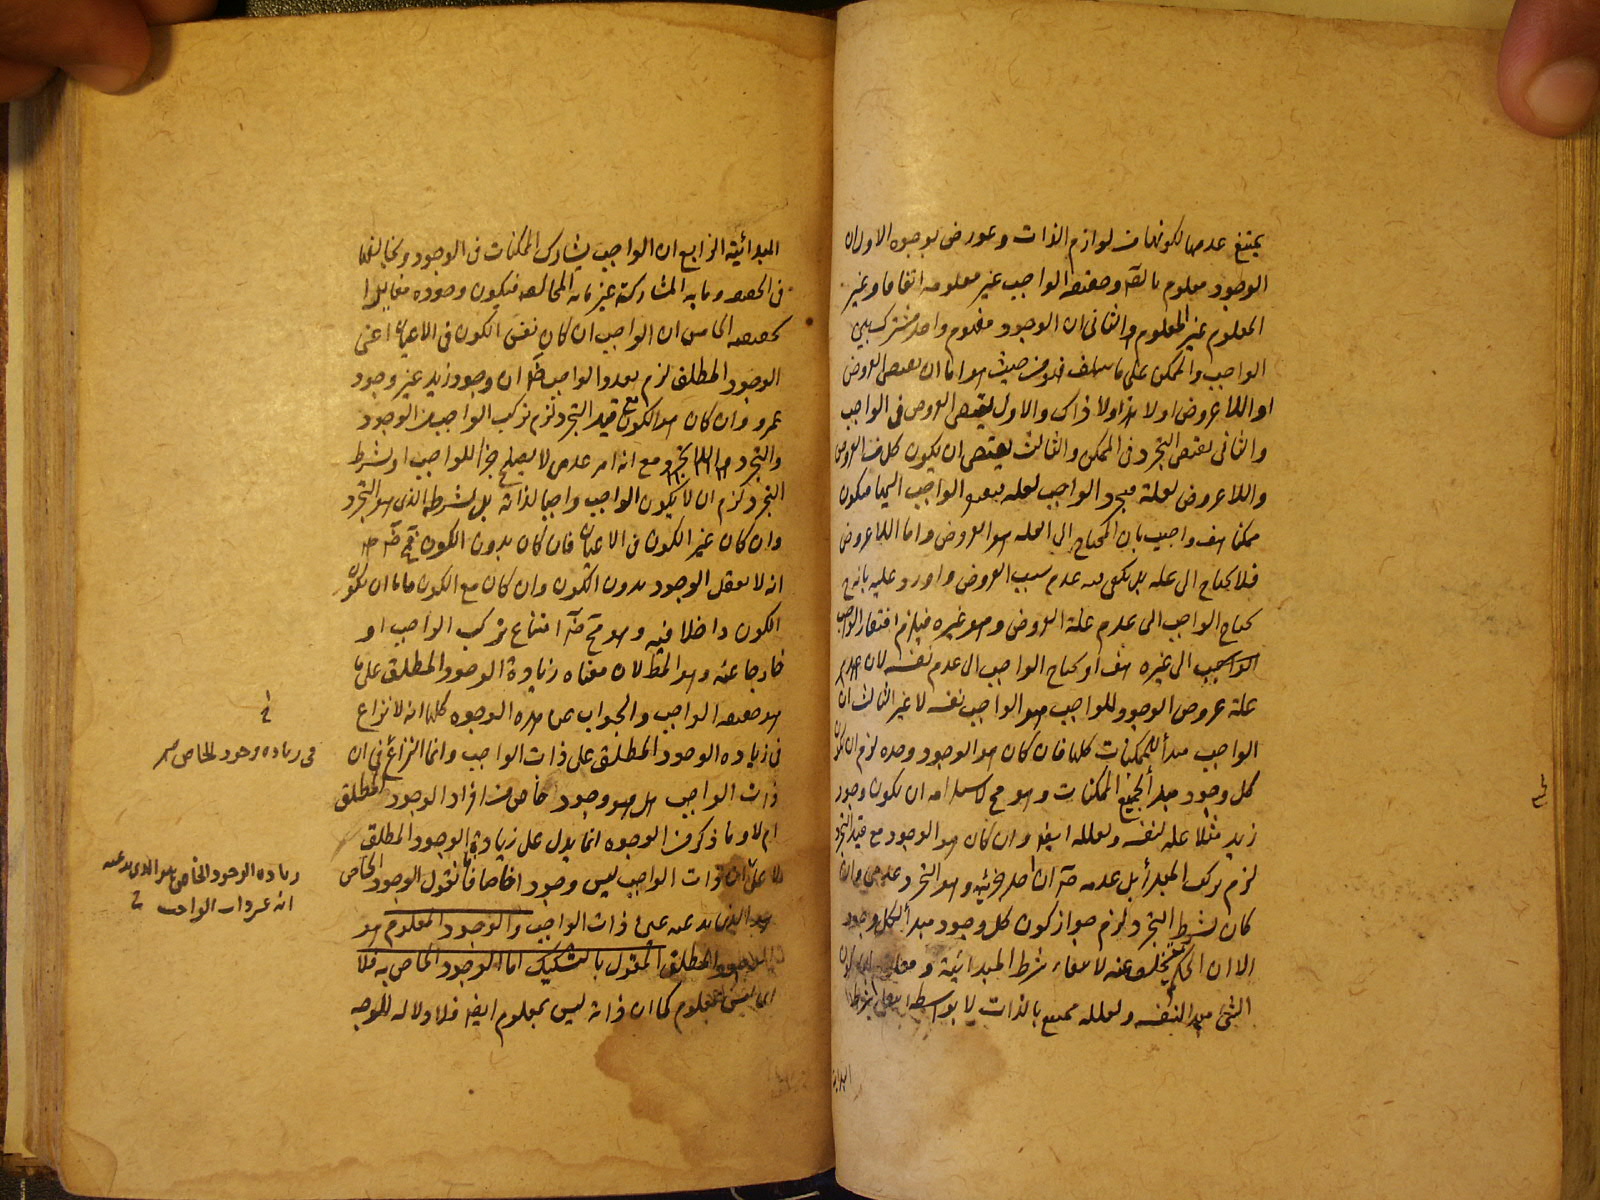 يمتنع عدمها لكونها من لوازم الذات وعورض بوجوه الاول ان
الوجود معلوم بالضرورة وحقيقة الواجب غير معلومة اتفاقا وغير
المعلوم غير المعلوم والثانى ان الوجود مفهوم واحد مشترك بين
الواجب والممكن على ما سلف فهو من حيث هو اما ان يقتضى العروض
او اللاعروض او لا هذا ولا ذاك والاول يقتضى العروض فى الواجب
والثانى يقتضى التجرد فى الممكن والثالث يقتضى ان يكون كل من العروض
واللاعروض لعلة فتجرد الواجب لعلة فيفتقر الواجب اليها فيكون
ممكنا هف واجيب بان المحتاج الى العلة هو العروض واما اللاعروض
فلا يحتاج الى علة بل يكفى فيه عدم سبب العروض واورد عليه بانه ح
يحتاج الواجب الى عدم علة العروض وهو غيره فيلزم افتقار الواجب
الواجب الى غيره هف او يحتاج الواجب الى عدم نفسه لان
علة عروض الوجود للواجب هو الواجب نفسه لا غير الثالث ان
الواجب مبدأ للممكنات كلها فان كان هو الوجود وحده لزم ان يكون
كل وجود مبدأ لجميع الممكنات وهو مح لاستلزامه ان يكون وجود
زيد مثلا علة لنفسه ولعلله ايضا وان كان هو الوجود مع قيد التجرد
لزم تركب المبدأ بل عدمه ضرورة ان احد جزئيه وهو التجرد عدمى وان
كان بشرط التجرد لزم جواز كون كل وجود مبدأ لكل وجود
الا ان الحكم تخلف عنه لانتفاء شرط المبدائية و
الشئ مبدأ لنفسه ولعلله ممتنع بالذات لا بواسطة انتفاء شرط
المبدائية الرابع ان الواجب يشارك الممكنات فى الوجود ويخالفها
فى الحقيقة وما به المشاركة غير ما به المخالفة فيكون وجوده مغايرا
لحقيقته الخامس ان الواجب ان كان نفس الكون فى الاعيان اعنى
الوجود المطلق لزم تعدد الواجب ضرورة ان وجود زيد غير وجود
عمرو وان كان هو الكون مع قيد التجرد لزم تركب الواجب من الوجود
والتجرد مع انه امر عدمى لا يصلح جزءا للواجب او بشرط
التجرد لزم ان لا يكون الواجب واجبا لذاته بل بشرطه الذى هو التجرد
وان كان غير الكون فى الاعيان فان كان بدون الكون فمح ضرورة
انه لا يعقل الوجود بدون الكون وان كان مع الكون فاما ان يكون
الكون داخلا فيه وهو مح ضرورة امتناع تركب الواجب او
خارجا عنه وهو المط لان معناه زيادة الوجود المطلق على ما
هو حقيقة الواجب والجواب عن هذه الوجوه كلها انه لا نزاع
فى زيادة الوجود المطلق على ذات الواجب وانما النزاع فى ان
ذات الواجب هل هو وجود خاص من افراد الوجود المطلق
ام لا وما ذكر من الوجوه انما يدل على زيادة الوجود المطلق
لا على ان ذات الواجب ليس وجودا خاصا فانا نقول الوجود الخاص
عين ذات الواجب والوجود المعلوم هو
الوجود المطلق المقول بالتشكيك اما الوجود الخاص به فلا
ليس بمعلوم كما ان ذاته ليس بمعلوم ايضا فلا دلالة للوجه
فى زيادة وجود الخاص
زيادة الوجود الخاص هو الذى ندعى
انه عين ذات الواجب